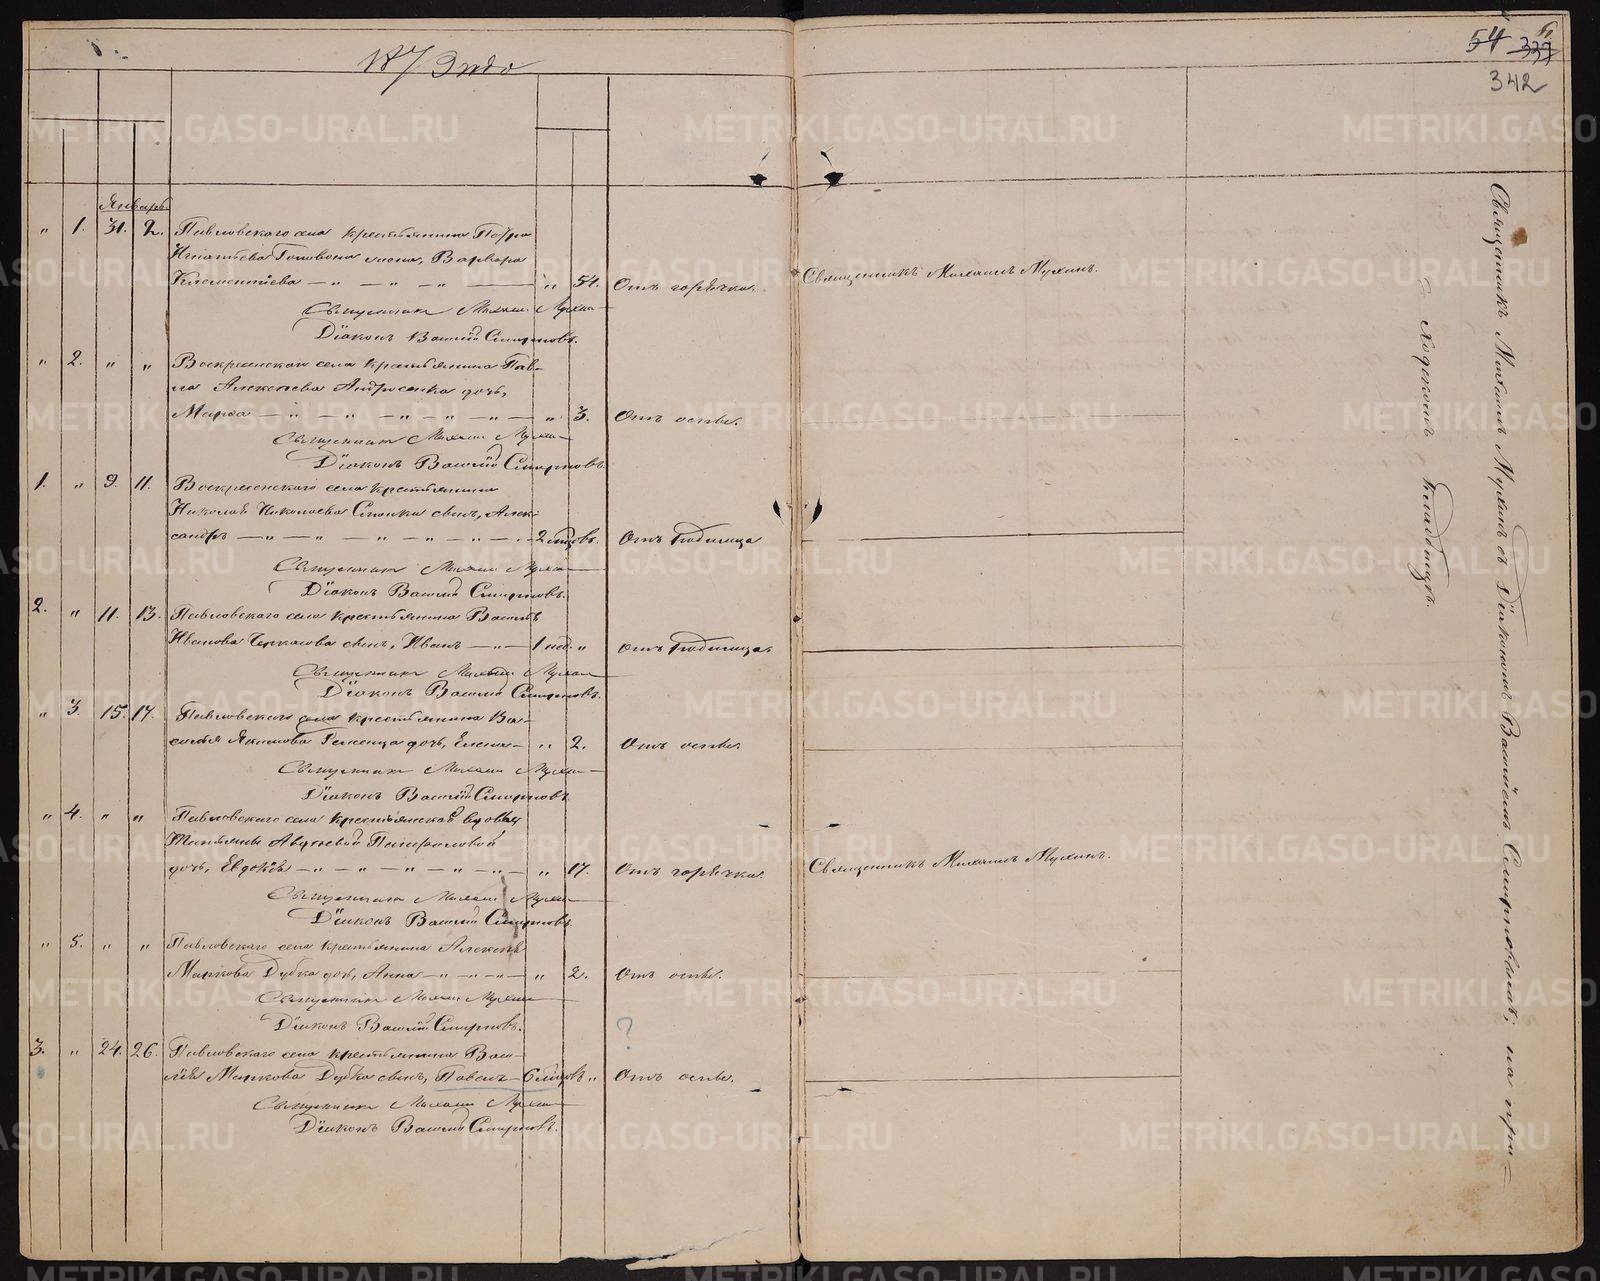 1873 года
54 337
342
Январь.
" 1. 31. 2. Павловскаго села крестьянина Петра
Игнатьева жена, Варвара
Клементіева — " — " — " — " 54. Отъ горячки. Священникъ Михаилъ Мухинъ.
Священникъ Михаилъ Мухинъ
Діаконъ Василій Смирновъ.
" 2. " " Воскресенскаго села крестьянина Пав-
ла Алексѣева Андрсенка дочь,
Марѳа — " — " — " — " — " — " 3. Отъ оспы.
Священникъ Михаилъ Мухинъ
Діаконъ Василій Смирновъ.
1. " 9. 11. Воскресенскаго села крестьянина
Николая Николаева сынъ, Алек-
сандръ — " — " — " — " — " — 2 мѣсяцовъ. Отъ Родимца
Священникъ Михаилъ Мухинъ
Діаконъ Василій Смирновъ.
2. " 11. 13. Павловскаго села крестьянина Василія
Иванова сынъ, Иванъ — " — 1 нед. " Отъ Родимца.
Священникъ Михаилъ Мухинъ
Діаконъ Василій Смирновъ.
" 3. 15. 17. Павловскаго села крестьянина Ва-
силія Якимова дочь, Елена — " 2. Отъ оспы.
Священникъ Михаилъ Мухинъ
Діаконъ Василій Смирновъ
" 4. " " Павловскаго села крестьянской вдовы
Татьяны Авдѣевой
дочь, Евдокія — " — " — " — " — " — " 17. Отъ горячки. Священникъ Михаилъ Мухинъ.
Священникъ Михаилъ Мухинъ
Діаконъ Василій Смирновъ
" 5. " " Павловскаго села крестьянина Алексѣя
Маркова Дубка дочь, Анна — " — " — " — " 2. Отъ оспы.
Священникъ Михаилъ Мухинъ
Діаконъ Василій Смирновъ.
?
3. " 24. 26. Павловскаго села крестьянина Васи-
лія Маркова Дубка сынъ, Павелъ — 6 мѣсяцовъ " Отъ оспы.
Священникъ Михаилъ Мухинъ
Діаконъ Василій Смирновъ.
Священникъ Михаилъ Мухинъ съ Діакономъ Василіемъ Смирновымъ; на при-
ходскомъ Кладбищѣ.
METRIKI.GASO-URAL.RU